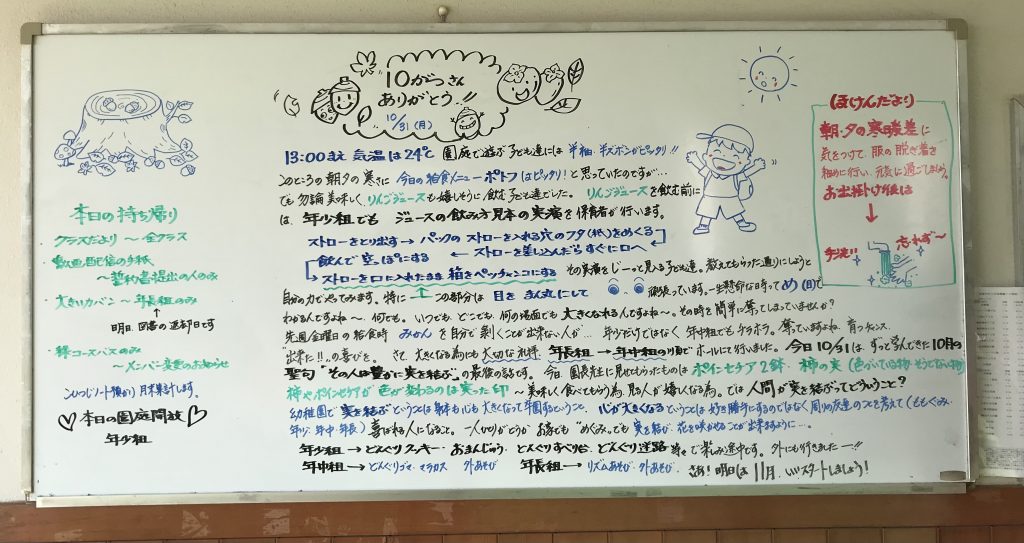 10がつさん
ありがとう!!
10/31(月)
13:00まえ 気温は24℃ 園庭で遊ぶ子ども達には 半袖・半ズボンがピッタリ!!
このところの朝夕の寒さに 今日の給食メニュー ポトフはピッタリ!と思っていたのですが…
でも勿論美味しく りんごジュースも嬉しそうに飲む子ども達でした。りんごジュースを飲む前に
は、年少組でも ジュースの飲み方見本の実演を保育者が行います。
ストローをとり出す→パックの ストローを入れる穴のフタ(紙)をめくる
飲んで空っぽにする ← ストローを差し込んだらすぐに口へ
→ストローを口に入れたまま 箱をペッチャンコにする その実演をじーっと見る子ども達。教えてもらった通りにしようと
自分の力でやってみます。特に この部分は 目を まん丸にして 頑張っています。一生懸命な時って め(目)で
わかるんですよね〜。何でも。いつも。どこでも。何の場面でも 大きくなれるんですよね〜。その時を簡単に奪ってしまっていませんか?
先週金曜日の給食時 みかんを自分で剥くことが出来ない人が… 年少だけではなく 年中組でもチラホラ。奪っていますよね。育つチャンス。
"出来た!!"の喜びを。さて、大きくなる為にも大切な礼拝。年長組→年中組の順でホールにて行いました。今日10/31は ずっと学んできた10月の
聖句"その人は豊かに実を結ぶ"の最後の話です。今日、園長先生に見せてもらったものは ポインセチア2鉢・柿の実(色づいている物・そうでない物)
柿やポインセチアが 色が変わるのは実った印 〜美味しく食べてもらう為、見る人が嬉しくなる為。では人間が実を結ぶってどういうこと?
幼稚園で実を結ぶということは身体も心も大きくなって卒園するということ。心が大きくなるということは好き勝手にするのではなく周りのお友達のことを考えて(ももぐみ・
年少・年中・年長)喜ばれる人になること。一人ひとりがどうかお家でも"めぐみ"でも 実を結び 花を咲かせることが出来ますように…。
年少組→どんぐりクッキー・おまんじゅう、どんぐりすべり台、どんぐり迷路 等々で楽しみ途中です。外にも行きましたー!!
年中組→どんぐりゴマ・マラカス 外あそび 年長組→リズムあそび・外あそび。さあ!明日は11月、いいスタートしましょう!
本日の持ち帰り
・クラスだより〜全クラス
・動画配信の手紙
〜誓約書提出の人のみ
・大きいカバン〜年長組のみ
↑
明日、図書の返却日です
・緑コースバスのみ
〜メンバー変更のお知らせ
月末集計します。
♡本日の園庭開放♡
年少組
(ほけんだより)
朝・夕の寒暖差に
気をつけて、服の脱ぎ着を
細めに行い、元気に過ごしましょう。
お出掛け後は
↓
手洗い 忘れず〜